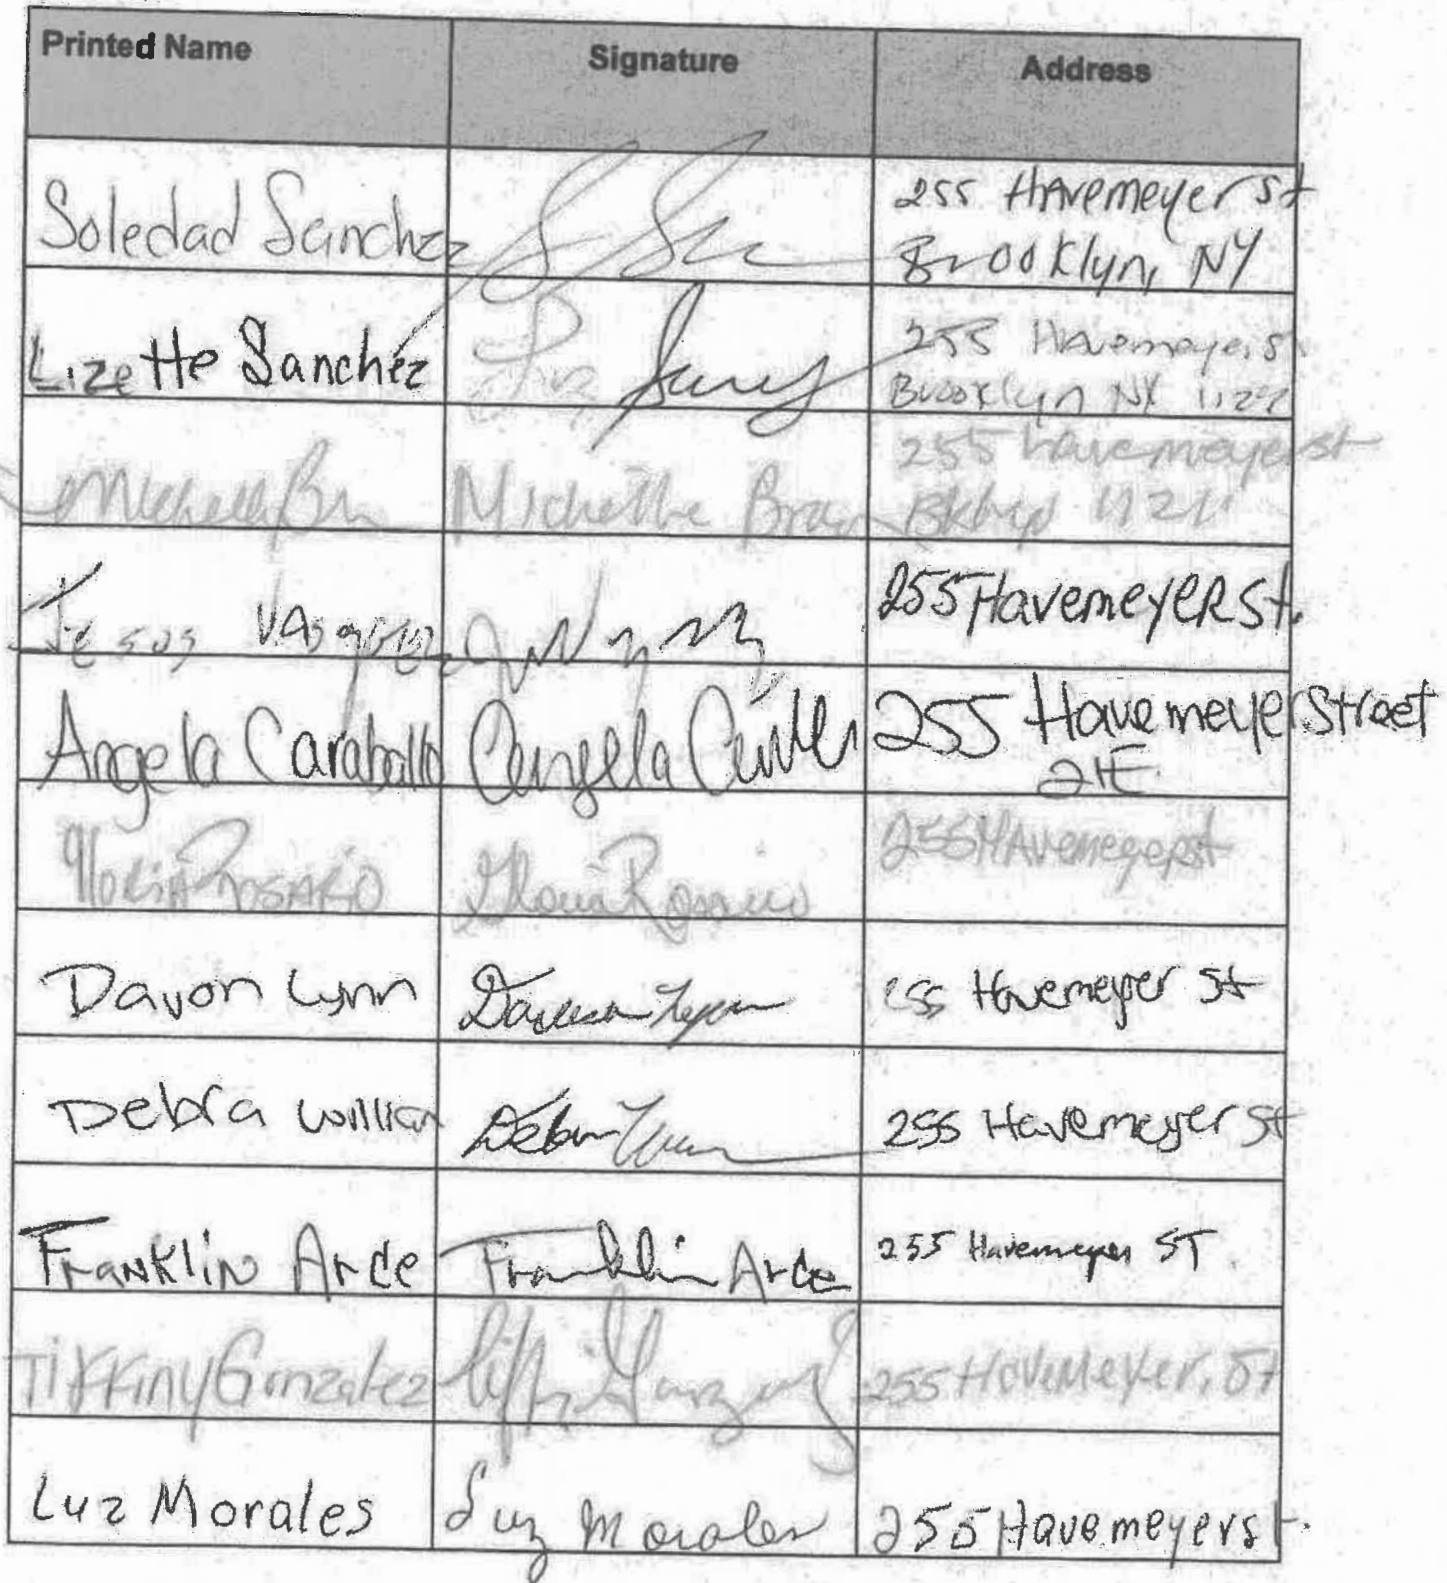 Printed Name Signature Address
Soledad Sanchez 255 Havemeyer St
Brooklyn, NY
Lizette Sanchez Liz 255 Havemeyer S
Brooklyn NY 1122
Michelle 255 havemeyer st
Michelle
Jesus Vasquez 255 Havemeyer St.
Angela Caraballo Angela 255 Havemeyer Street
21E
Gloria Rosario Gloria Rosario 255 Havemeyer st
Davon Lynn 255 Havemeyer St
Debra William Debra 255 Havemeyer St
Franklin Arce Franklin Arce 255 Havemeyer ST
Tiffiny Gonzalez 255 Havemeyer, St
Luz Morales Luz Morales 255 Havemeyer st.